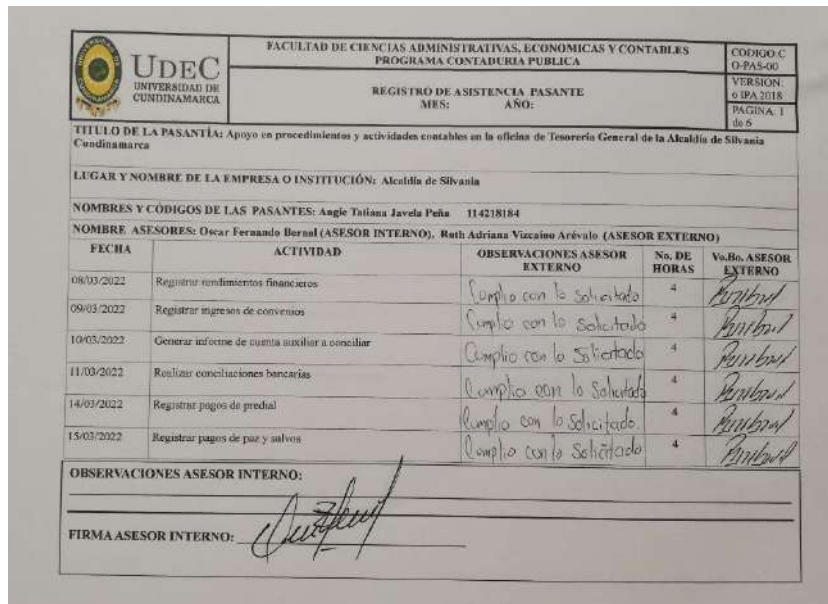 FACULTAD DE CIENCIAS ADMINISTRATIVAS, ECONOMICAS Y CONTABLES
PROGRAMA CONTADURIA PUBLICA
CODIGO:C
O-PAS-00
UDEC
UNIVERSIDAD DE
CUNDINAMARCA
REGISTRO DE ASISTENCIA PASANTE
MES: AÑO:
VERSION:
0 IPA 2018
PAGINA: 1
de 6
TITULO DE LA PASANTÍA: Apoyo en procedimientos y actividades contables en la oficina de Tesorería General de la Alcaldía de Silvania
Cundinamarca
LUGAR Y NOMBRE DE LA EMPRESA O INSTITUCIÓN: Alcaldía de Silvania
NOMBRES Y CÓDIGOS DE LAS PASANTES: Angie Tatiana Javela Peña 114218184
NOMBRE ASESORES: Oscar Fernando Bernal (ASESOR INTERNO), Ruth Adriana Vizcaino Arévalo (ASESOR EXTERNO)
FECHA ACTIVIDAD OBSERVACIONES ASESOR EXTERNO No. DE HORAS Vo.Bo. ASESOR EXTERNO
08/03/2022 Registrar rendimientos financieros Cumplio con lo Solicitado 4
09/03/2022 Registrar ingresos de convenios Cumplio con lo Solicitado 4
10/03/2022 Generar informe de cuenta auxiliar a conciliar Cumplio con lo Solicitado 4
11/03/2022 Realizar conciliaciones bancarias Cumplio con lo Solicitado 4
14/03/2022 Registrar pagos de predial Cumplio con lo Solicitado. 4
15/03/2022 Registrar pagos de paz y salvos Cumplio con lo Solicitado 4
OBSERVACIONES ASESOR INTERNO:
FIRMA ASESOR INTERNO: